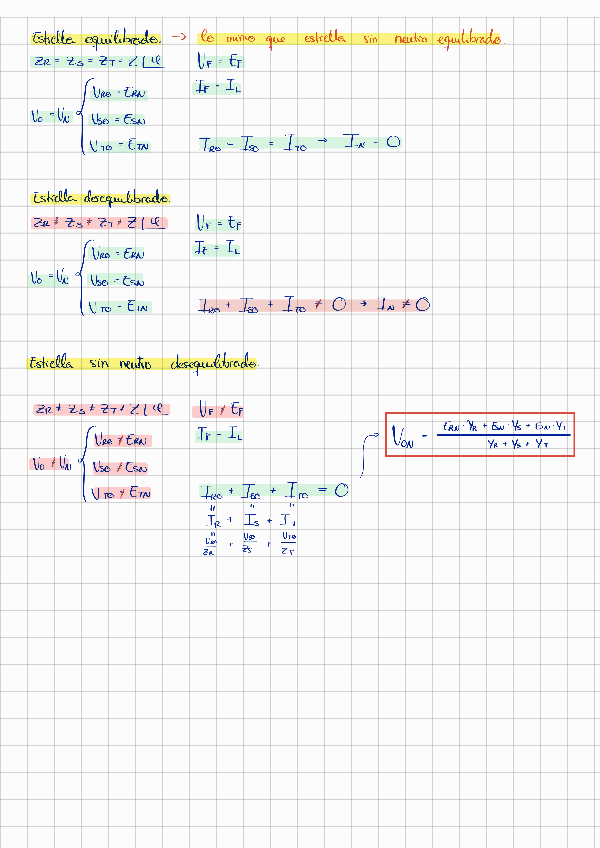 Estrella equilibrado. → lo mismo que estrella sin neutro equilibrado.
ZR = ZS = ZT = Z∠φ
UF = EF
IF = IL
UO = UN { URO = ERN
USO = ESN
UTO = ETN
IRO = ISO = ITO → IN = 0
Estrella desequilibrado.
ZR ≠ ZS ≠ ZT ≠ Z∠φ
UF = EF
IF = IL
UO = UN { URO = ERN
USO = ESN
UTO = ETN
IRO + ISO + ITO ≠ 0 → IN ≠ 0
Estrella sin neutro desequilibrado.
ZR ≠ ZS ≠ ZT ≠ Z∠φ
UF ≠ EF
IF = IL
UO ≠ UN { URO ≠ ERN
USO ≠ ESN
UTO ≠ ETN
IRO + ISO + ITO = 0
IR + IS + IT
URO/ZR + USO/ZS + UTO/ZT
→ UON = (ERN · YR + ESN · YS + ETN · YT) / (YR + YS + YT)